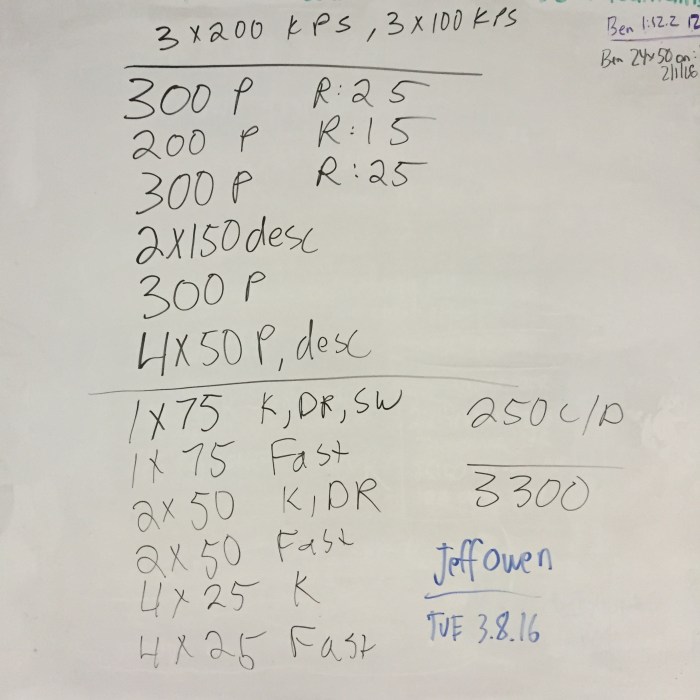 3 x 200 KPS, 3 x 100 KPS
Ben 1:12.2 12
Ben 24x50 on:
2/1/16
300 P R:25
200 P R:15
300 P R:25
2X150 desc
300 P
4X50 P, desc
1X75 K, DR, SW
1X 75 Fast
2x 50 K, DR
2x 50 Fast
4x25 K
4X25 Fast
250 C/D
3300
Jeff Owen
TUE 3.8.16